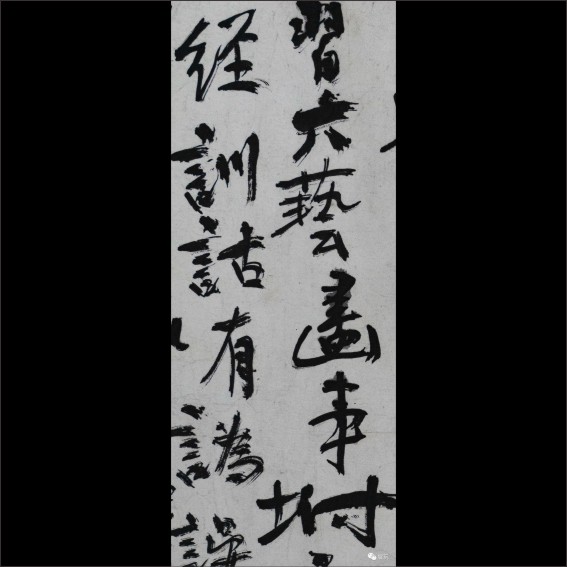 習六藝畫事坿
経訓詁有譌